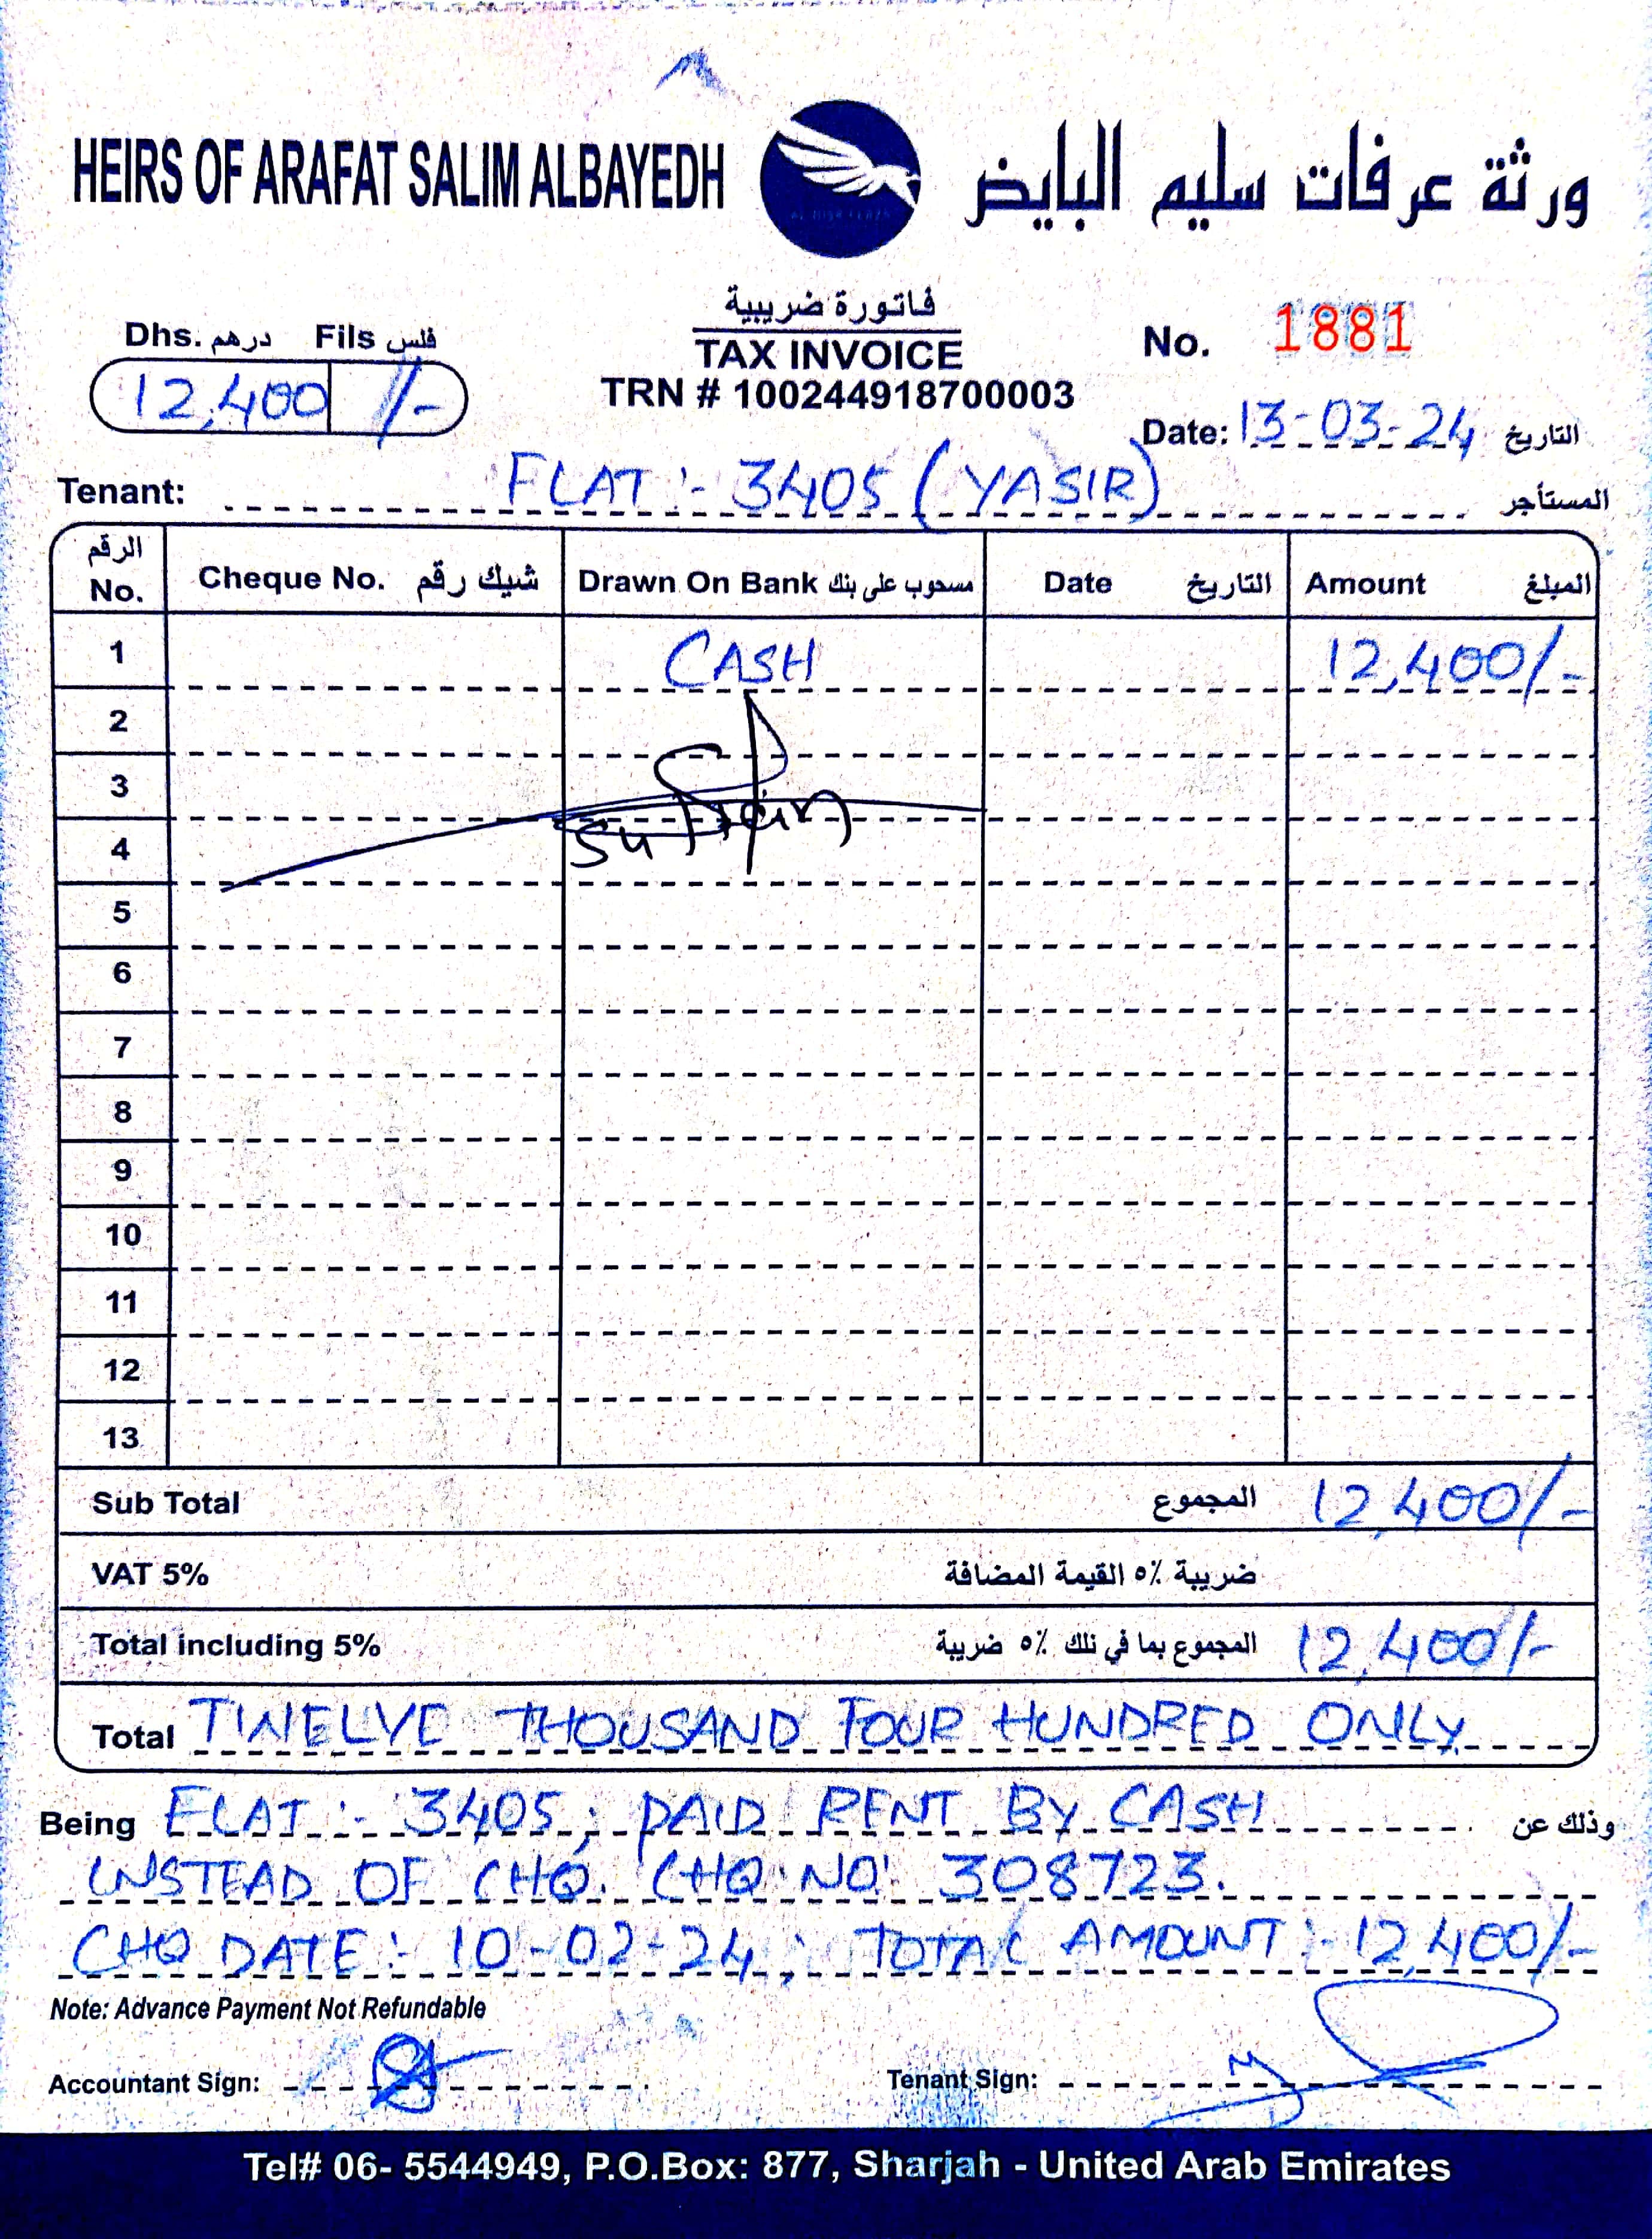 HEIRS OF ARAFAT SALIM ALBAYEDH ورثة عرفات سليم البايض
فاتورة ضريبية
TAX INVOICE
TRN # 100244918700003
Dhs. درهم Fils فلس
12,400 /-
No. 1881
Date: 13-03-24 التاريخ
Tenant: FLAT :- 3405 (YASIR) المستأجر
الرقم No. Cheque No. شيك رقم Drawn On Bank مسحوب على بنك Date التاريخ Amount المبلغ
1 CASH 12,400/-
2
3
4
5
6
7
8
9
10
11
12
13
Sub Total المجموع 12,400/-
VAT 5% ضريبة ٥٪ القيمة المضافة
Total including 5% المجموع بما في تلك ٥٪ ضريبة 12,400/-
Total TWELVE THOUSAND FOUR HUNDRED ONLY
Being FLAT :- 3405; PAID RENT BY CASH وذلك عن
INSTEAD OF CHQ. CHQ NO: 308723.
CHQ DATE :- 10-02-24; TOTAL AMOUNT :- 12,400/-
Note: Advance Payment Not Refundable
Accountant Sign: Tenant Sign:
Tel# 06- 5544949, P.O.Box: 877, Sharjah - United Arab Emirates